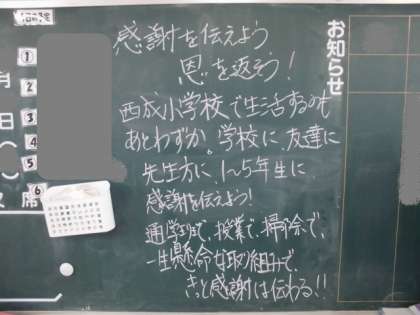 お知らせ
感謝を伝えよう
恩を返そう！
西成小学校で生活するのも
あとわずか。学校に、友達に
先生方に、1～5年生に、
感謝を伝えよう！
通学路で、授業で、掃除で、
一生懸命な取り組みで、
きっと感謝は伝わる！！
月
日
（
）
欠席
1
2
3
4
5
6